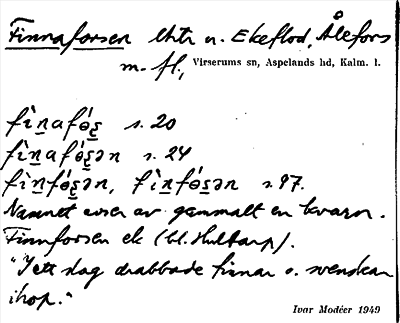 Finnaforsen lhtr n. Ekeflod, Ålefors
m. fl., Virserums sn, Aspelands hd, Kalm. l.
fìnafɵ́s̱ s. 20
fìṉafɵ́s̱ən s. 24
fìṉfɵ́s̱ən, fìṉfɵ́s̱ən s. 97.
Namnet avser av gammalt en kvarn.
Finnforsen ek (bl. Hultarp).
"I ett slag drabbade finnar o. svenskar
ihop."
Ivar Modéer 1949